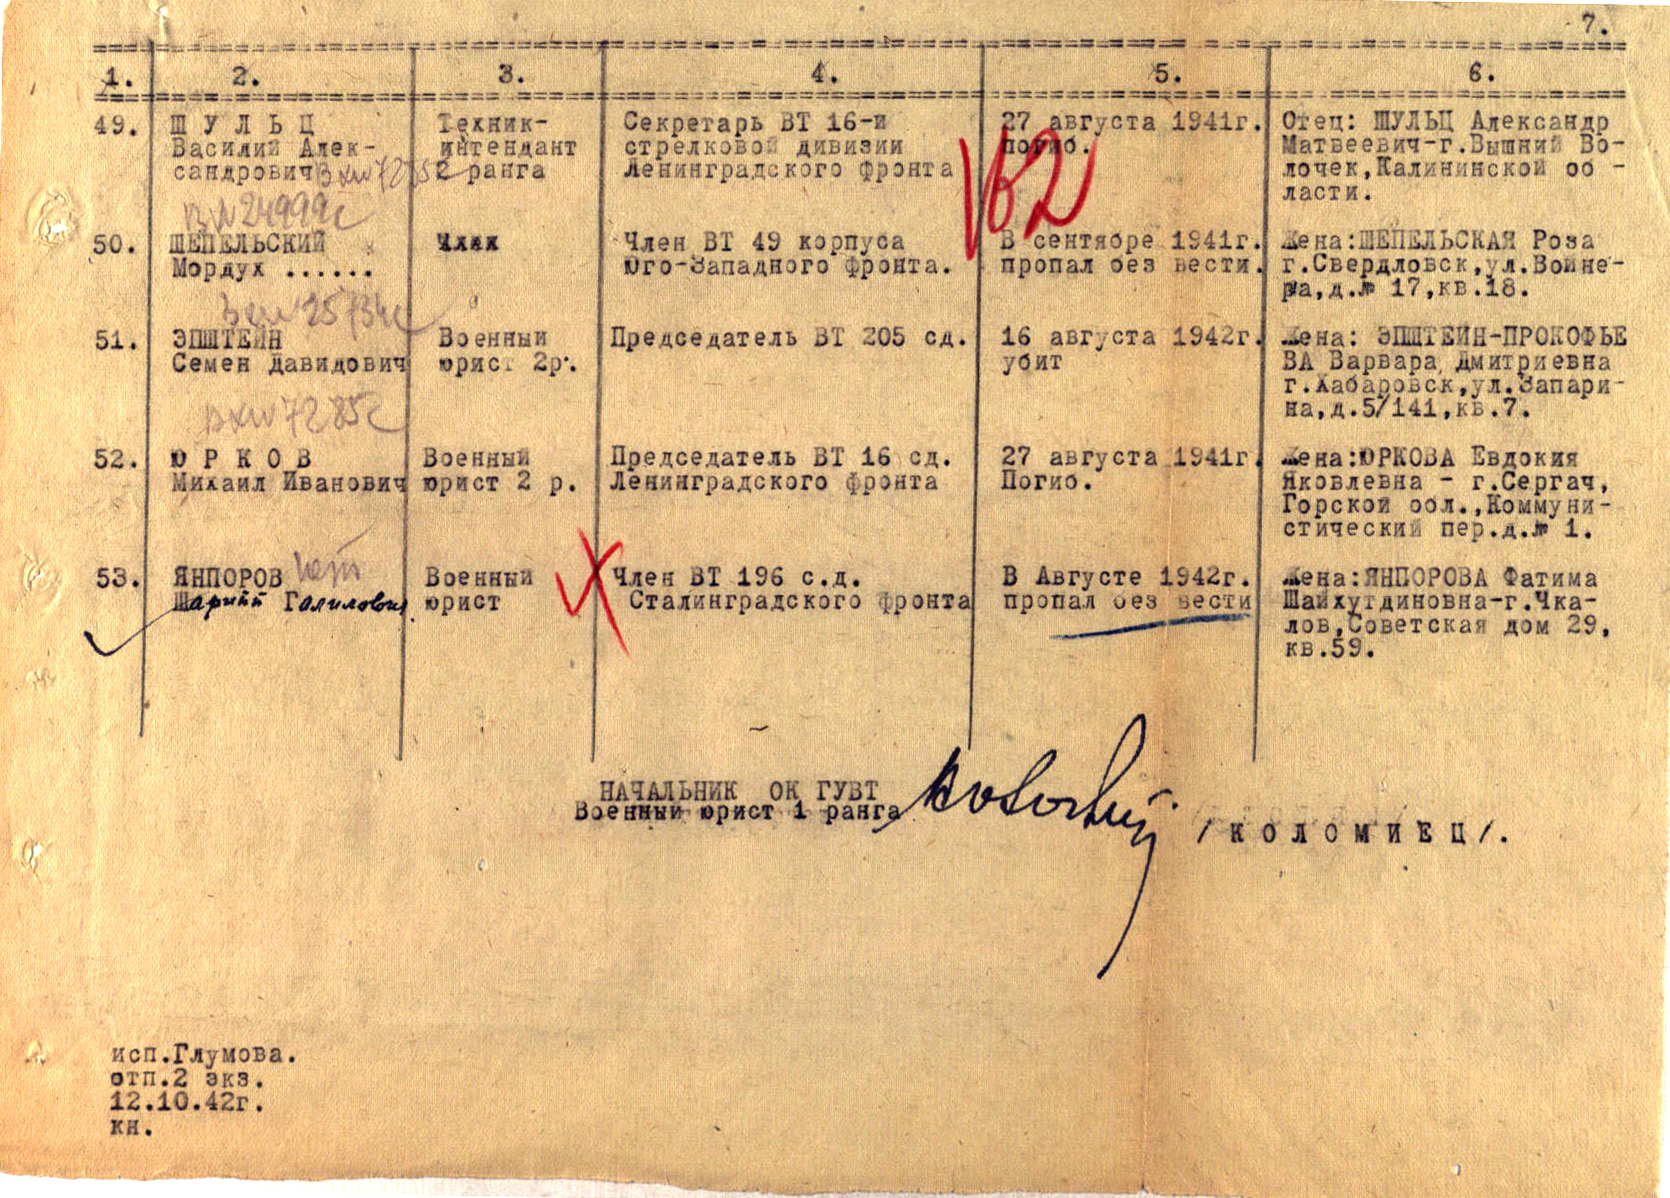 7.
1. 2. 3. 4. 5. 6.
49. Ш У Л Ь Ц
Василий Алек-
сандрович
Техник-
интендант
2 ранга
Секретарь ВТ 16-й
стрелковой дивизии
Ленинградского фронта
27 августа 1941г.
погиб.
Отец: ШУЛЬЦ Александр
Матвеевич-г.Вышний Во-
лочек,Калининской об -
ласти.
162
50. ШЕПЕЛЬСКИЙ
Мордух ......
Член ВТ 49 корпуса
Юго-Западного фронта.
В сентябре 1941г.
пропал без вести.
Жена:ШЕПЕЛЬСКАЯ Роза
г.Свердловск,ул.Войне-
ра,д.№ 17,кв.18.
51. ЭПШТЕЙН
Семен Давидович
Военный
юрист 2р.
Председатель ВТ 205 сд.
16 августа 1942г.
убит
Жена: ЭПШТЕЙН-ПРОКОФЬЕ
ВА Варвара Дмитриевна
г.Хабаровск,ул.Запари-
на,д.5/141,кв.7.
52. Ю Р К О В
Михаил Иванович
Военный
юрист 2 р.
Председатель ВТ 16 сд.
Ленинградского фронта
27 августа 1941г.
Погиб.
Жена:ЮРКОВА Евдокия
Яковлевна - г.Сергач,
Горской обл.,Коммуни-
стический пер.д.№ 1.
53. ЯНПОРОВ
Шариф Галилович
Военный
юрист
Член ВТ 196 с.д.
Сталинградского фронта
В Августе 1942г.
пропал без вести
Жена:ЯНПОРОВА Фатима
Шайхутдиновна-г.Чка-
лов,Советская дом 29,
кв.59.
НАЧАЛЬНИК ОК ГУВТ
Военный юрист 1 ранга
/К О Л О М И Е Ц/.
исп.Глумова.
отп.2 экз.
12.10.42г.
кн.